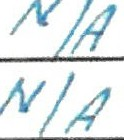 N/A
N/A